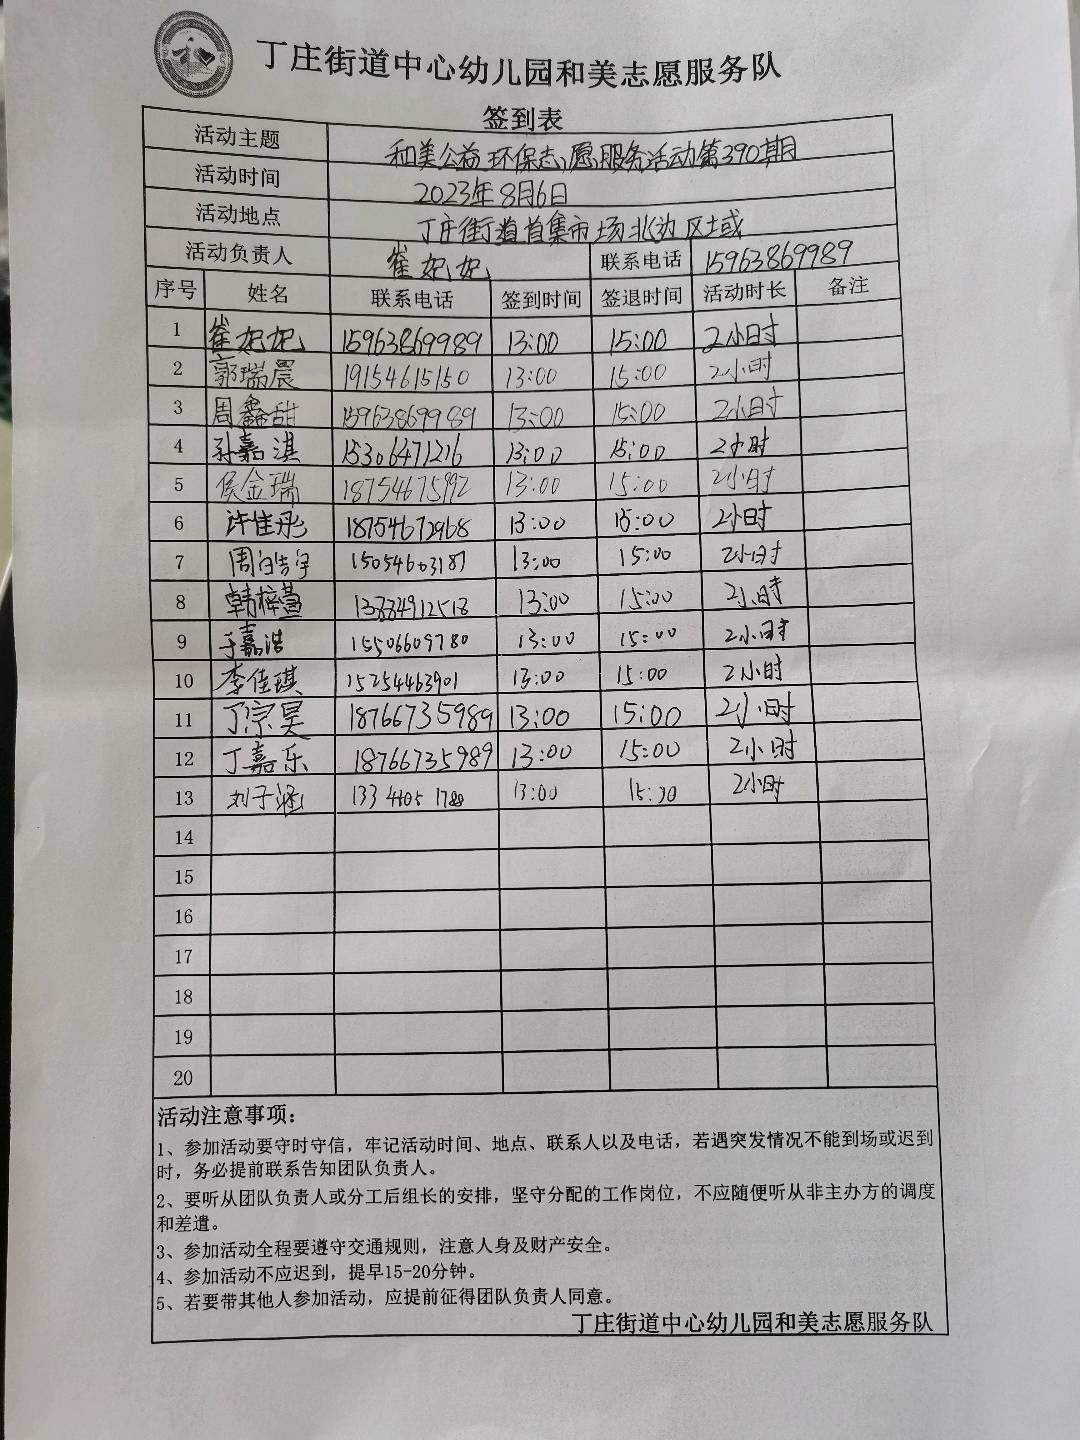 丁庄街道中心幼儿园和美志愿服务队
签到表
活动主题 和美公益环保志愿服务活动第390期
活动时间 2023年8月6日
活动地点 丁庄街道首集市场北边区域
活动负责人 崔妃妃 联系电话 15963869989
序号 姓名 联系电话 签到时间 签退时间 活动时长 备注
1 崔妃妃 15963869989 13:00 15:00 2小时
2 郭瑞晨 19154615150 13:00 15:00 2小时
3 周鑫甜 15963869989 13:00 15:00 2小时
4 孙嘉淇 15306471216 13:00 15:00 2小时
5 侯金瑞 18754675992 13:00 15:00 2小时
6 许佳彤 18754672968 13:00 15:00 2小时
7 周皓宇 15054603187 13:00 15:00 2小时
8 韩梓萱 13884912518 13:00 15:00 2小时
9 于嘉浩 15506609780 13:00 15:00 2小时
10 李佳琪 15254463901 13:00 15:00 2小时
11 丁宗昊 18766735989 13:00 15:00 2小时
12 丁嘉乐 18766735989 13:00 15:00 2小时
13 刘子涵 13:00 2小时
14
15
16
17
18
19
20
活动注意事项：
1、参加活动要守时守信，牢记活动时间、地点、联系人以及电话，若遇突发情况不能到场或迟到
时，务必提前联系告知团队负责人。
2、要听从团队负责人或分工后组长的安排，坚守分配的工作岗位，不应随便听从非主办方的调度
和差遣。
3、参加活动全程要遵守交通规则，注意人身及财产安全。
4、参加活动不应迟到，提早15-20分钟。
5、若要带其他人参加活动，应提前征得团队负责人同意。
丁庄街道中心幼儿园和美志愿服务队